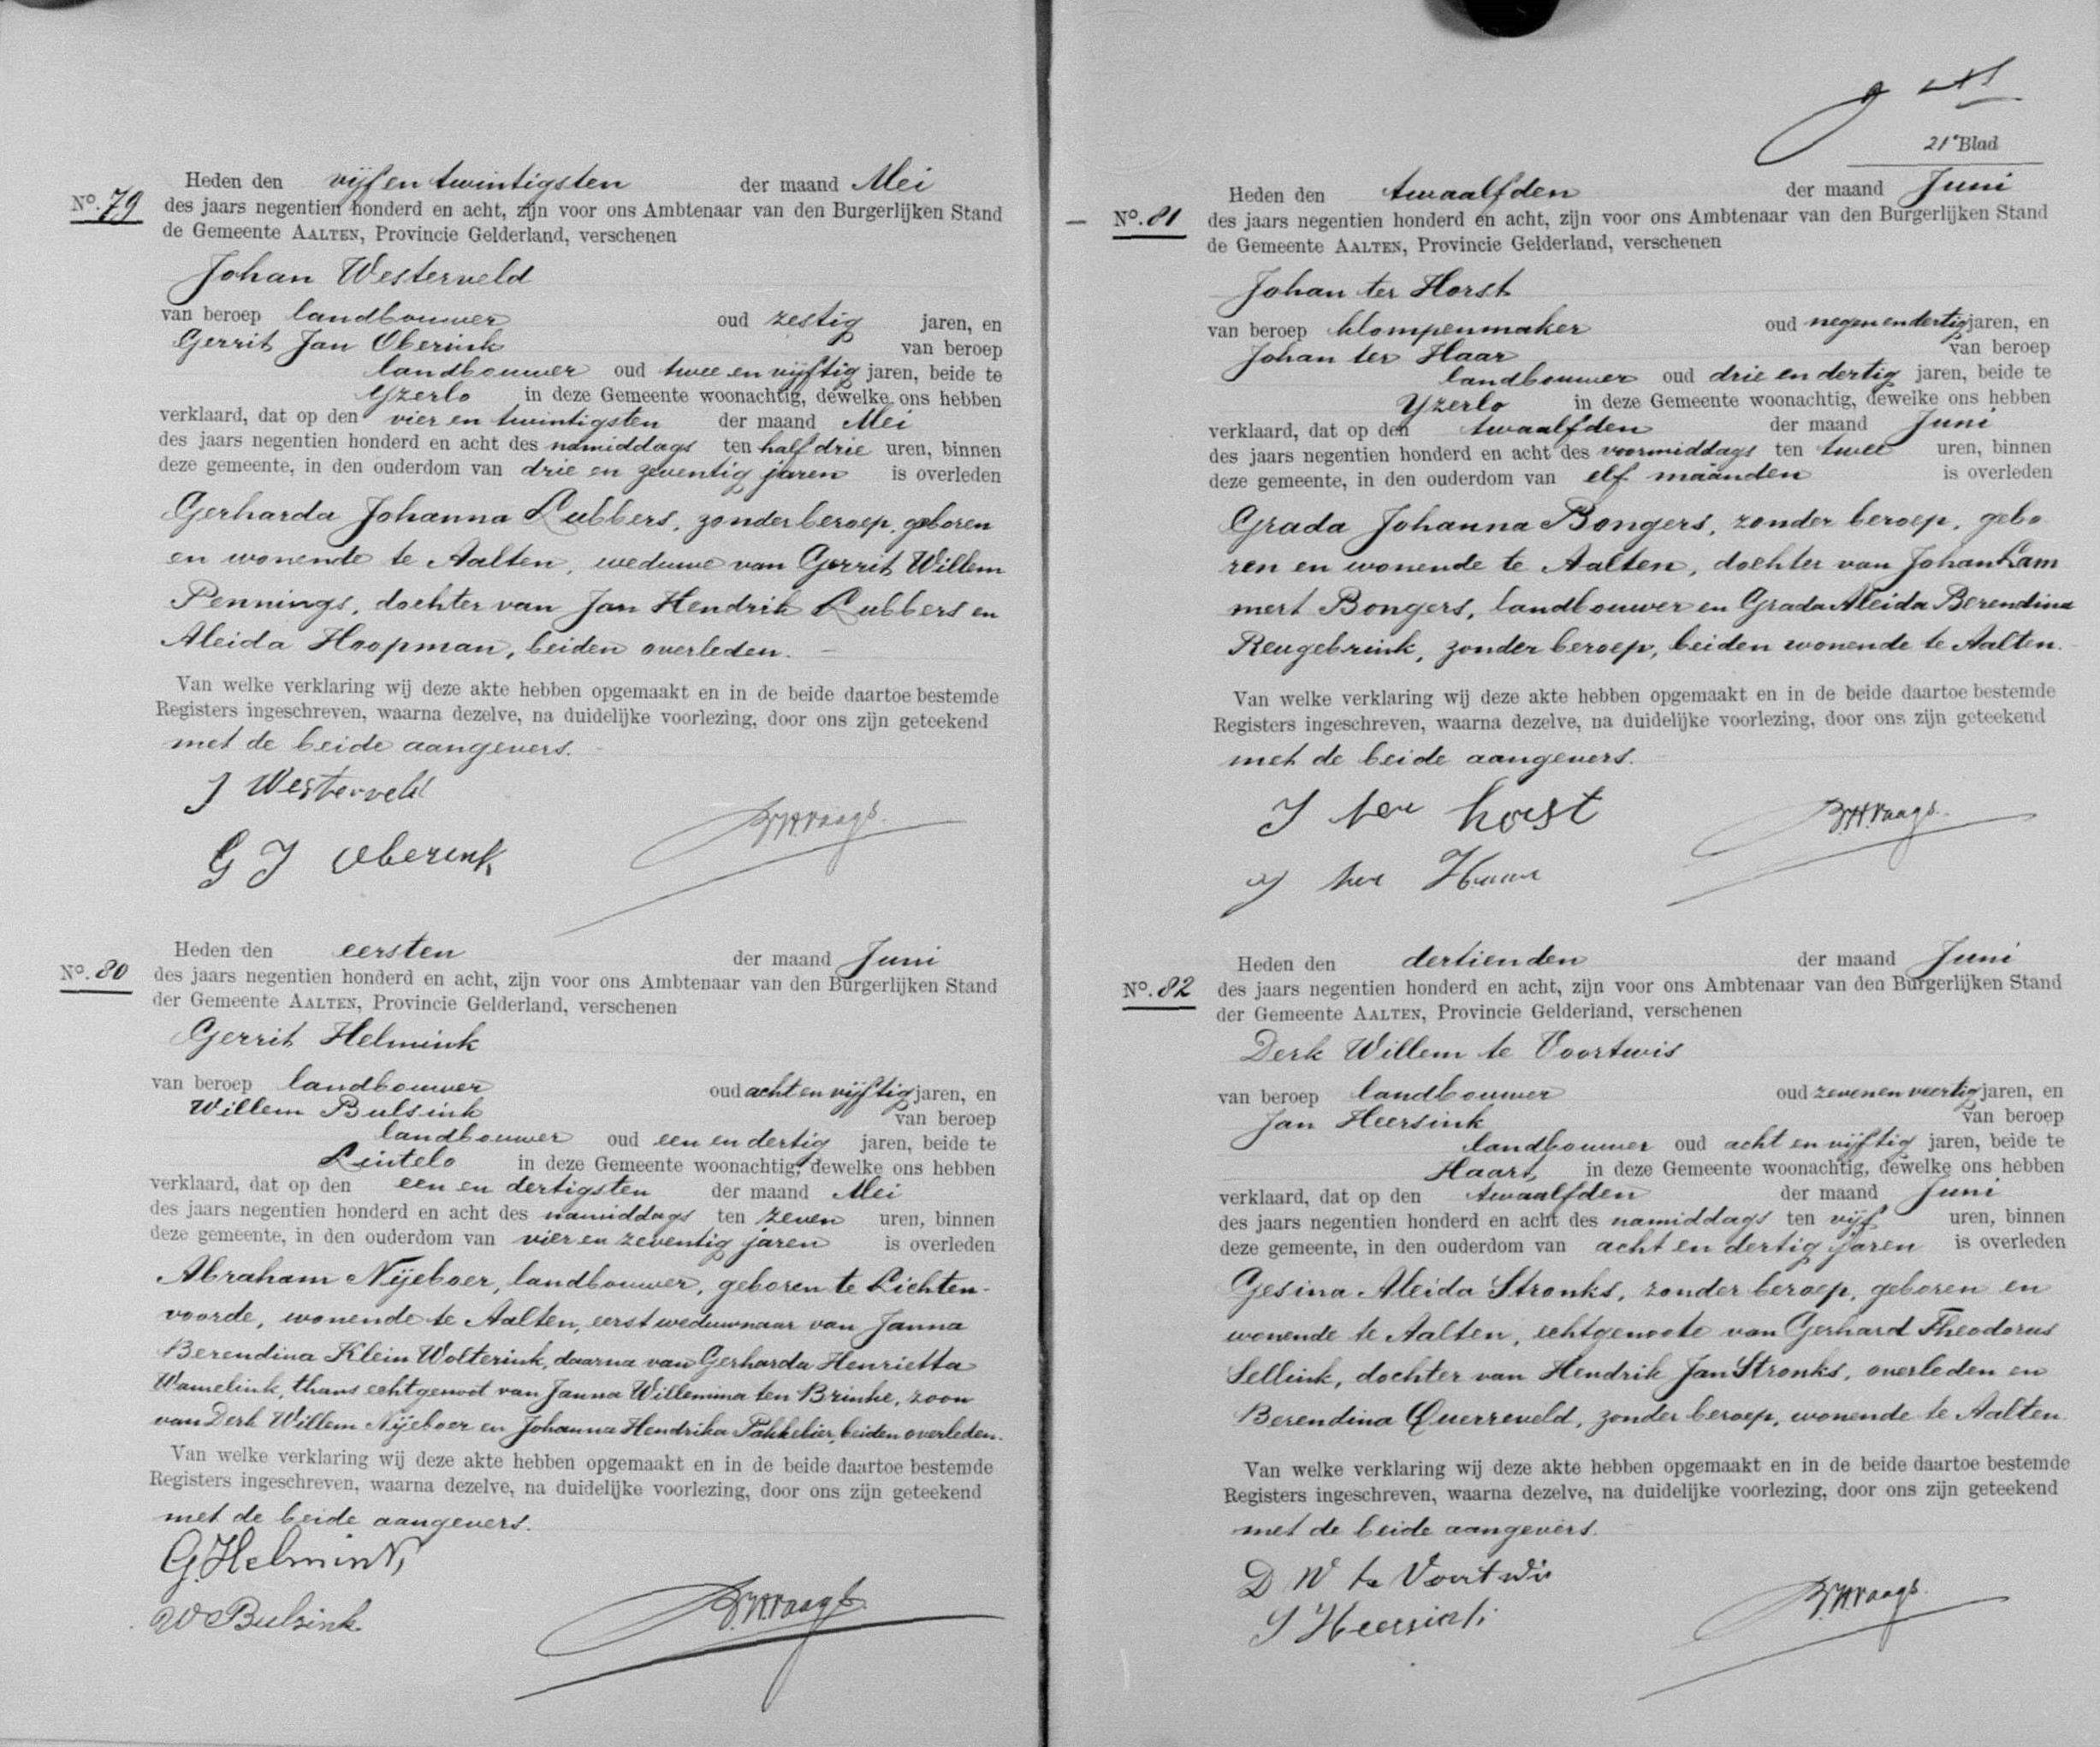 Heden den vijf en twintigsten der maand Mei
No. 79 des jaars negentien honderd en acht, zijn voor ons Ambtenaar van den Burgerlijken Stand
de Gemeente AALTEN, Provincie Gelderland, verschenen
Johan Westerveld
van beroep landbouwer oud zestig jaren, en
Gerrit Jan Oberink van beroep
landbouwer oud twee en vijftig jaren, beide te
Yzerlo in deze Gemeente woonachtig, dewelke ons hebben
verklaard, dat op den vier en twintigsten der maand Mei
des jaars negentien honderd en acht des namiddags ten half drie uren, binnen
deze gemeente, in den ouderdom van drie en zeventig jaren is overleden
Gerharda Johanna Lubbers, zonder beroep, geboren
en wonende te Aalten, weduwe van Gerrit Willem
Pennings, dochter van Jan Hendrik Lubbers en
Aleida Hoopman, beiden overleden.
Van welke verklaring wij deze akte hebben opgemaakt en in de beide daartoe bestemde
Registers ingeschreven, waarna dezelve, na duidelijke voorlezing, door ons zijn geteekend
met de beide aangevers.
J Westerveld
G J Oberink
Heden den eersten der maand Juni
No. 80 des jaars negentien honderd en acht, zijn voor ons Ambtenaar van den Burgerlijken Stand
der Gemeente AALTEN, Provincie Gelderland, verschenen
Gerrit Helmink
van beroep landbouwer oud acht en vijftig jaren, en
Willem Bulsink van beroep
landbouwer oud een en dertig jaren, beide te
Lintelo in deze Gemeente woonachtig, dewelke ons hebben
verklaard, dat op den een en dertigsten der maand Mei
des jaars negentien honderd en acht des namiddags ten zeven uren, binnen
deze gemeente, in den ouderdom van vier en zeventig jaren is overleden
Abraham Nijeboer, landbouwer, geboren te Lichten-
voorde, wonende te Aalten, eerst weduwnaar van Janna
Berendina Klein Wolterink, daarna van Gerharda Henrietta
Wamelink, thans echtgenoot van Janna Willemina ten Brinke, zoon
van Derk Willem Nijeboer en Johanna Hendrika Pakkebier, beiden overleden.
Van welke verklaring wij deze akte hebben opgemaakt en in de beide daartoe bestemde
Registers ingeschreven, waarna dezelve, na duidelijke voorlezing, door ons zijn geteekend
met de beide aangevers.
G. Helmink
W Bulsink
21e Blad
Heden den twaalfden der maand Juni
No. 81 des jaars negentien honderd en acht, zijn voor ons Ambtenaar van den Burgerlijken Stand
de Gemeente AALTEN, Provincie Gelderland, verschenen
Johan ter Horst
van beroep klompenmaker oud negen en dertig jaren, en
Johan ter Haar van beroep
landbouwer oud drie en dertig jaren, beide te
Yzerlo in deze Gemeente woonachtig, dewelke ons hebben
verklaard, dat op den twaalfden der maand Juni
des jaars negentien honderd en acht des voormiddags ten twee uren, binnen
deze gemeente, in den ouderdom van elf maanden is overleden
Grada Johanna Bongers, zonder beroep, gebo
ren en wonende te Aalten, dochter van Johan Lam
mert Bongers, landbouwer en Grada Aleida Berendina
Reugebrink, zonder beroep, beiden wonende te Aalten.
Van welke verklaring wij deze akte hebben opgemaakt en in de beide daartoe bestemde
Registers ingeschreven, waarna dezelve, na duidelijke voorlezing, door ons zijn geteekend
met de beide aangevers.
J ter horst
J ter Haar
Heden den dertienden der maand Juni
No. 82 des jaars negentien honderd en acht, zijn voor ons Ambtenaar van den Burgerlijken Stand
der Gemeente AALTEN, Provincie Gelderland, verschenen
Derk Willem te Voortwis
van beroep landbouwer oud zeven en veertig jaren, en
Jan Heersink van beroep
landbouwer oud acht en vijftig jaren, beide te
Haart in deze Gemeente woonachtig, dewelke ons hebben
verklaard, dat op den twaalfden der maand Juni
des jaars negentien honderd en acht des namiddags ten vijf uren, binnen
deze gemeente, in den ouderdom van acht en dertig jaren is overleden
Gesina Aleida Stronks, zonder beroep, geboren en
wonende te Aalten, echtgenoote van Gerhard Theodorus
Sellink, dochter van Hendrik Jan Stronks, overleden en
Berendina Querreveld, zonder beroep, wonende te Aalten.
Van welke verklaring wij deze akte hebben opgemaakt en in de beide daartoe bestemde
Registers ingeschreven, waarna dezelve, na duidelijke voorlezing, door ons zijn geteekend
met de beide aangevers.
D W te Voortwis
J Heersink